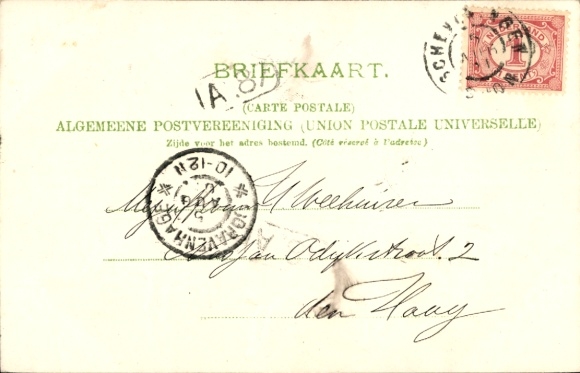 BRIEFKAART.
(CARTE POSTALE)
ALGEMEENE POSTVEREENIGING (UNION POSTALE UNIVERSELLE)
Zijde voor het adres bestemd. (Côté réservé à l'adresse)
SCHEVENINGEN
NEDERLAND
1
1A
'SGRAVENHAGE
10-12N
AUG
van Odijkstraat. 2
den Haag